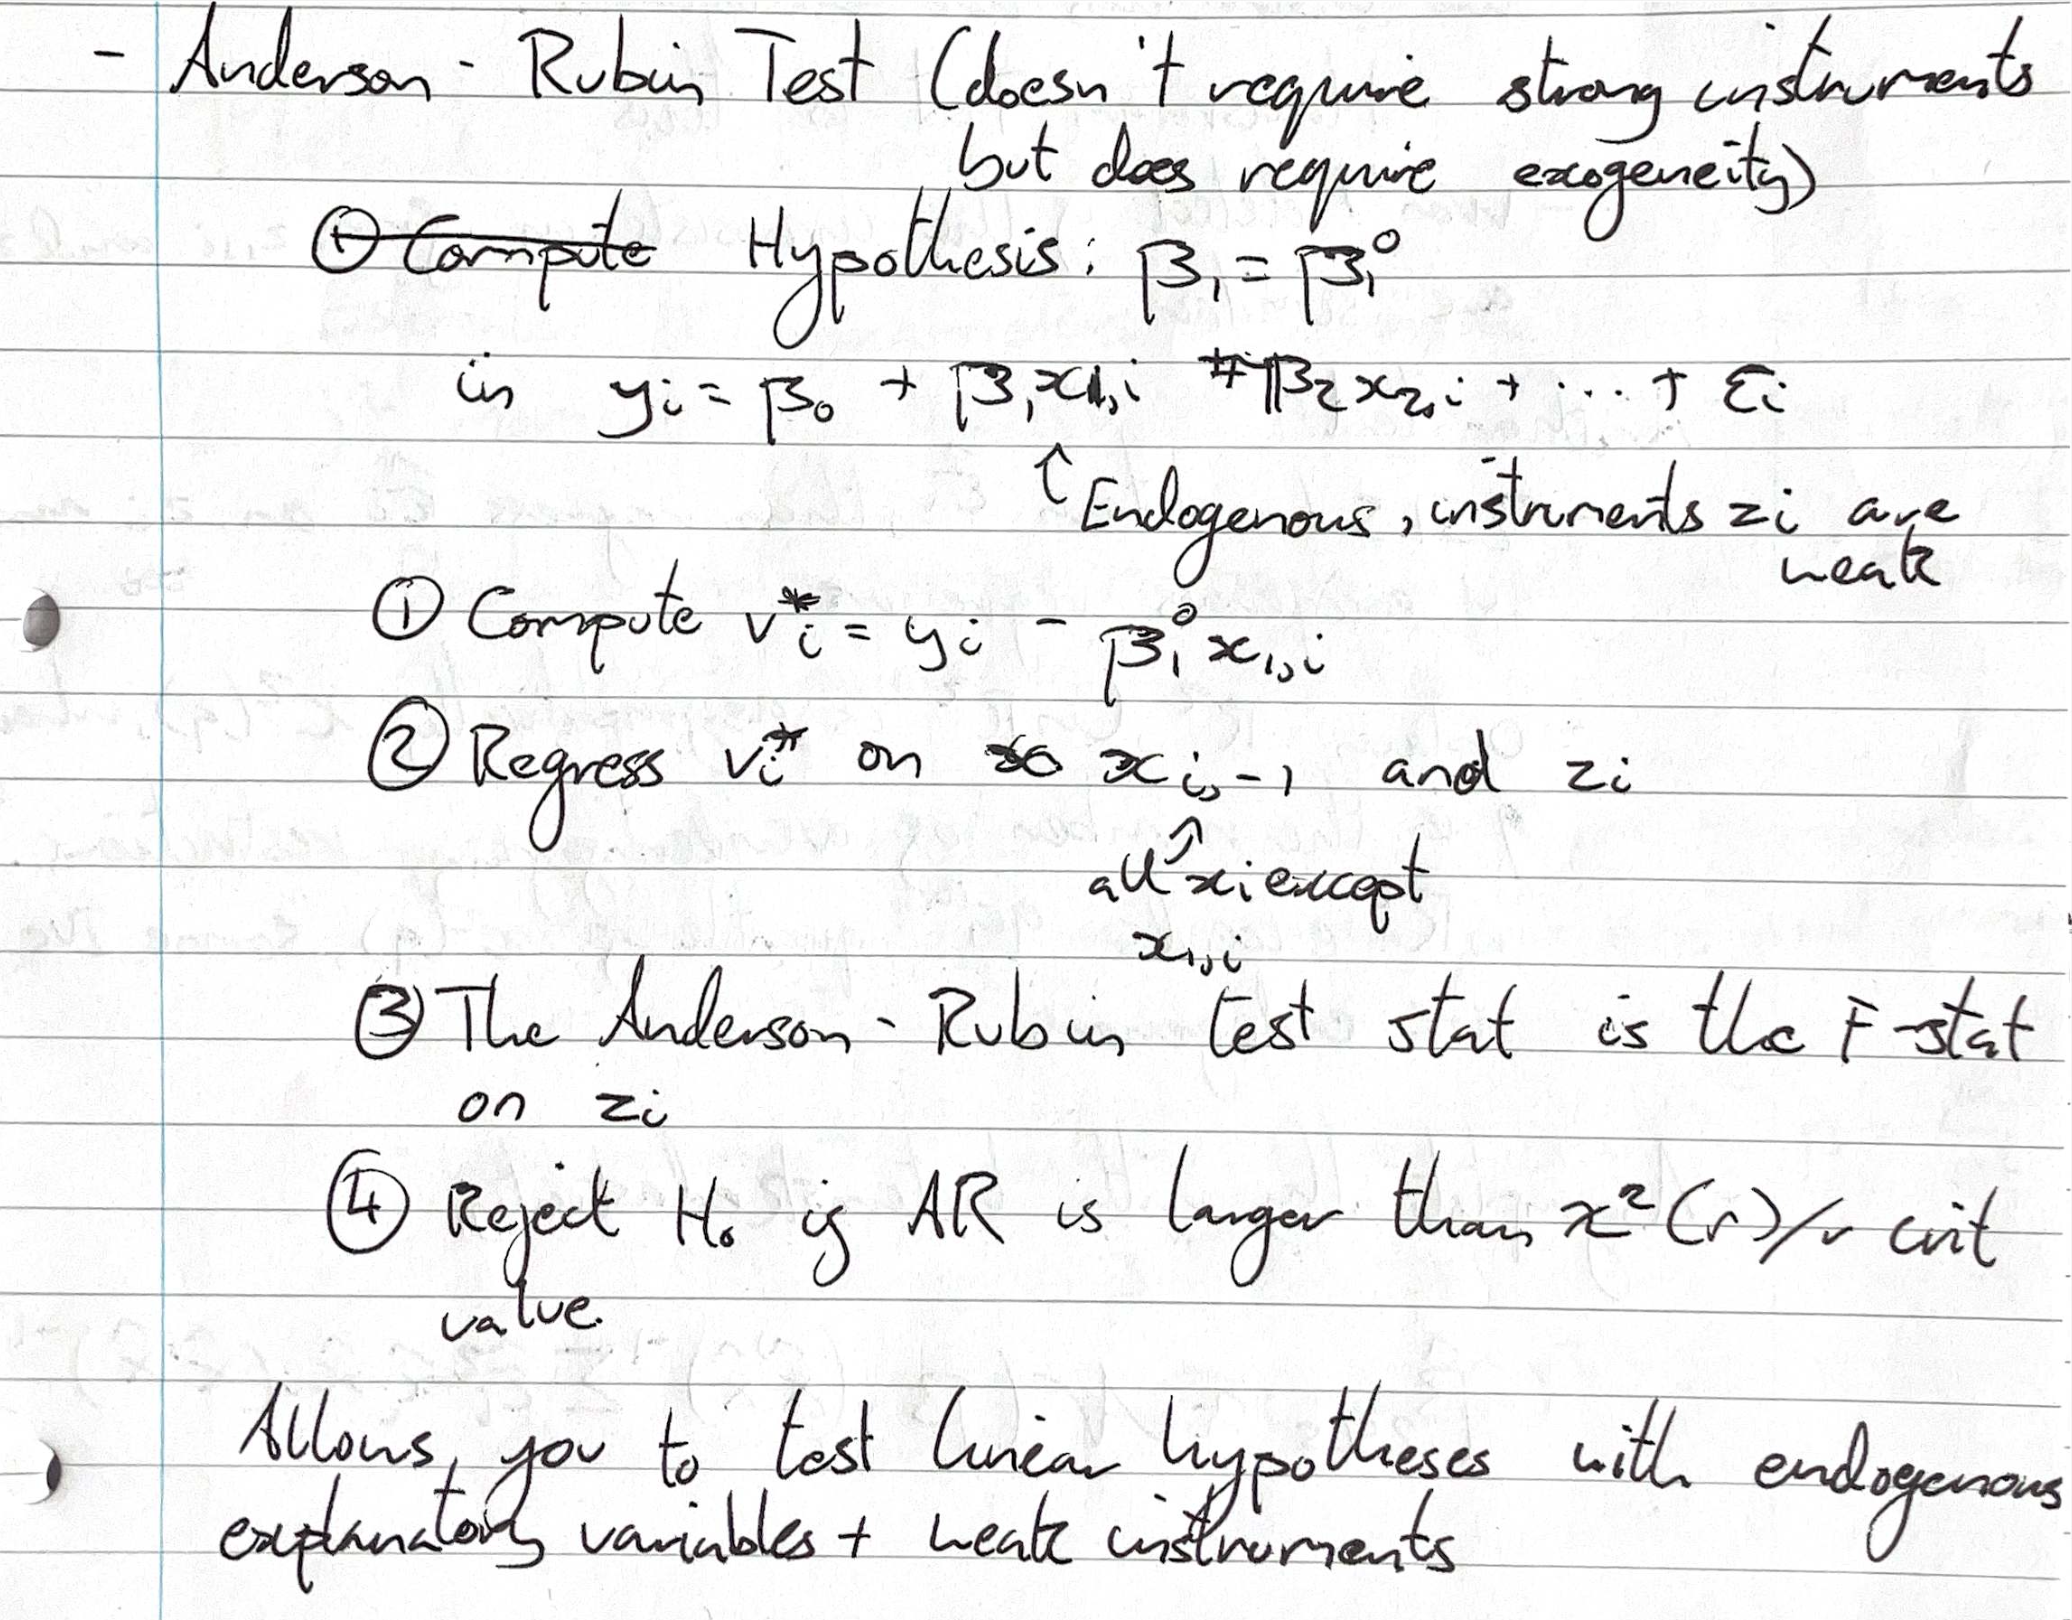 - Anderson - Rubin Test (doesn't require strong instruments
but does require exogeneity)
① Compute Hypothesis: β₁ = β₁⁰
in yᵢ = β₀ + β₁x₁,ᵢ + β₂x₂,ᵢ + ... + εᵢ
↑ Endogenous, instruments zᵢ are
weak
① Compute vᵢ* = yᵢ - β₁⁰x₁,ᵢ
② Regress vᵢ* on xᵢ,₋₁ and zᵢ
↑
all xᵢ except
x₁,ᵢ
③ The Anderson - Rubin test stat is the F-stat
on zᵢ
④ Reject H₀ if AR is larger than x²(r)/r crit
value.
Allows you to test linear hypotheses with endogenous
explanatory variables + weak instruments